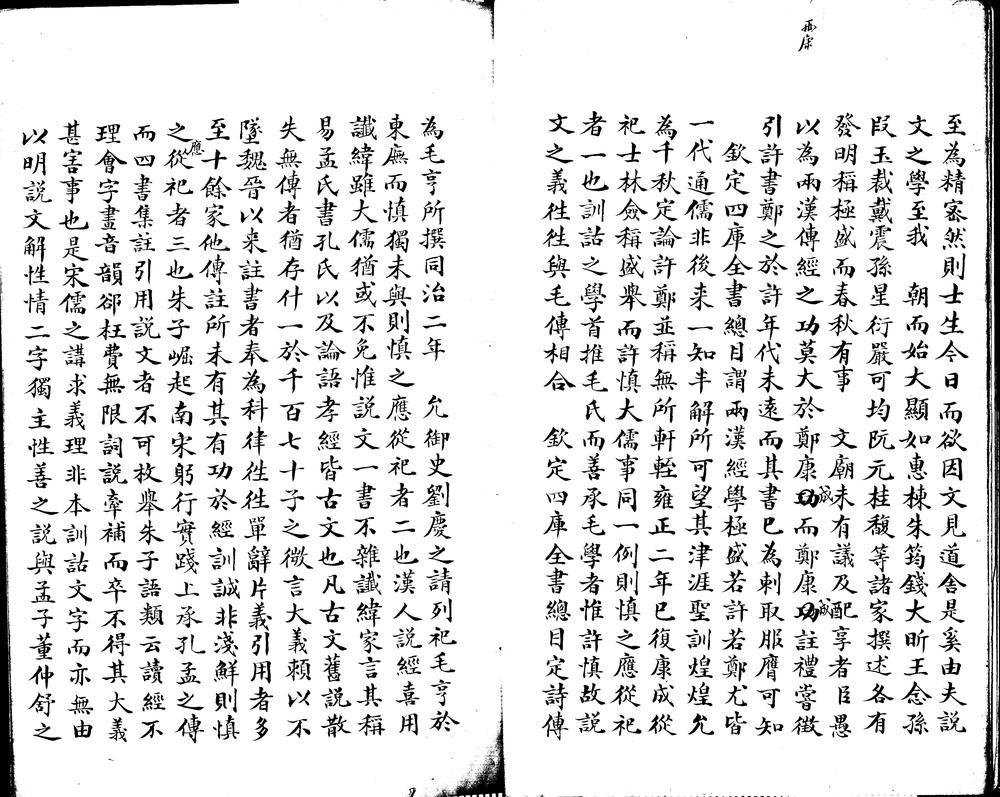 至為精密然則士生今日而欲因文見道舍是奚由夫説
文之學至我 朝而始大顯如惠棟朱筠錢大昕王念孫
段玉裁戴震孫星衍嚴可均阮元桂馥等諸家撰述各有
發明稱極盛而春秋有事 文廟未有議及配享者臣愚
以為兩漢傳經之功莫大於鄭康成而鄭康成註禮嘗徵
引許書鄭之於許年代未遠而其書已為刺取服膺可知
欽定四庫全書總目謂兩漢經學極盛若許若鄭尤皆
一代通儒非後来一知半解所可望其津涯聖訓煌煌允
為千秋定論許鄭並稱無所軒輊雍正二年已復康成從
祀士林僉稱盛舉而許慎大儒事同一例則慎之應從祀
者一也訓詁之學首推毛氏而善承毛學者惟許慎故説
文之義徃徃與毛傳相合 欽定四庫全書總目定詩傳
為毛亨所撰同治二年 允御史劉慶之請列祀毛亨於
東廡而慎獨未與則慎之應從祀者二也漢人説經喜用
讖緯雖大儒猶或不免惟説文一書不雜讖緯家言其稱
易孟氏書孔氏以及論語孝經皆古文也凡古文舊説散
失無傳者猶存什一於千百七十子之微言大義賴以不
墜魏晉以来註書者奉為科律徃徃單辭片義引用者多
至十餘家他傳註所未有其有功於經訓誠非淺鮮則慎
之應從祀者三也朱子崛起南宋躬行實踐上承孔孟之傳
而四書集註引用説文者不可枚舉朱子語類云讀經不
理會字畫音韻郤枉費無限詞説牽補而卒不得其大義
甚害事也是宋儒之講求義理非本訓詁文字而亦無由
以明説文解性情二字獨主性善之説與孟子董仲舒之